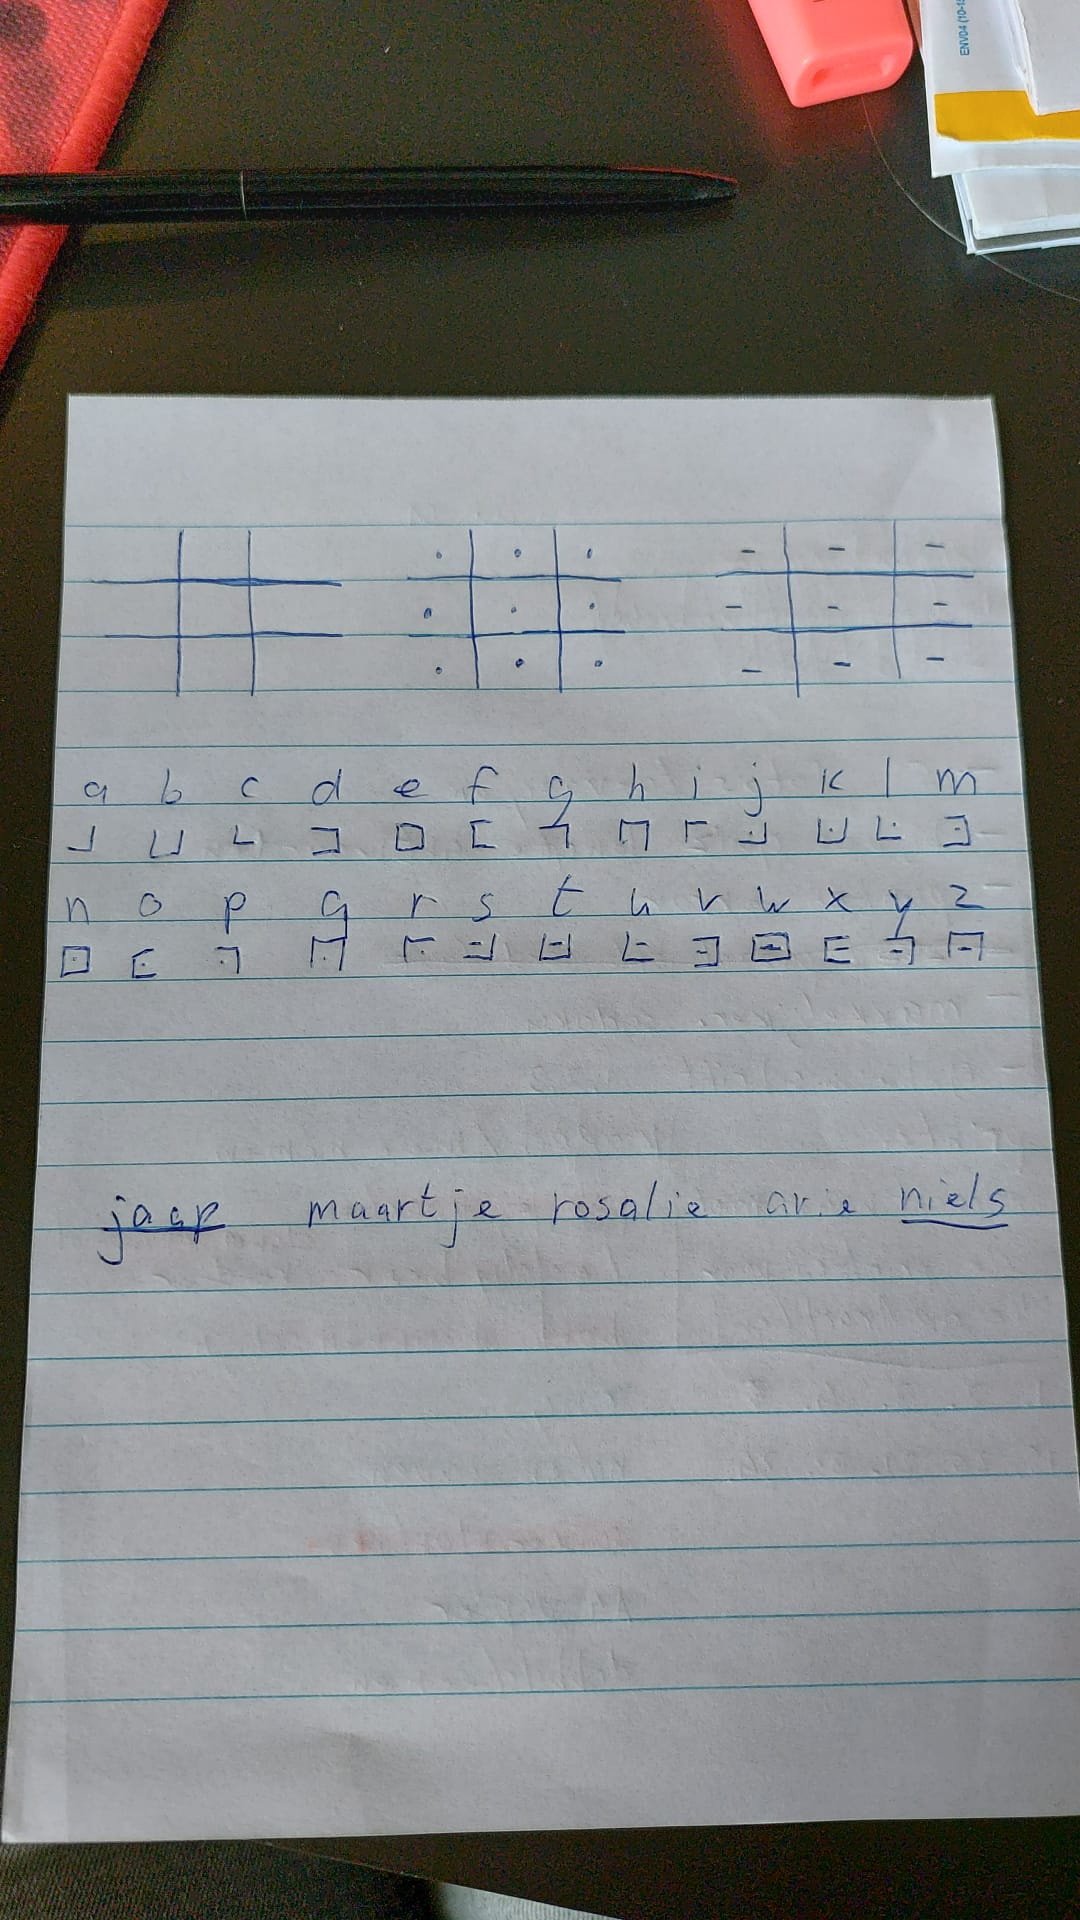 ENV04 (10-18
a b c d e f g h i j k l m
n o p q r s t u v w x y z
jaap maartje rosalie arie niels